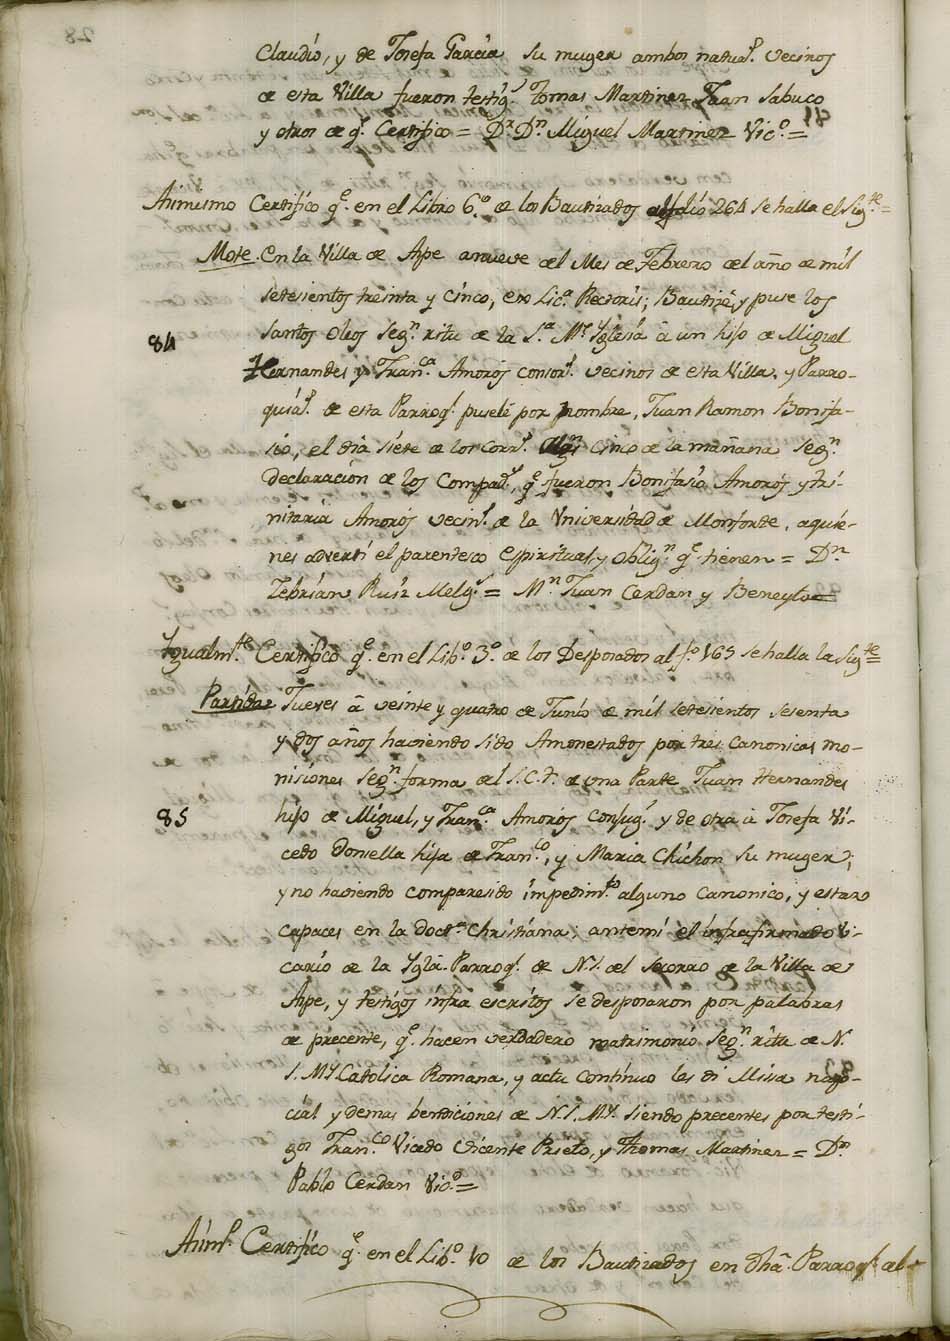 Claudio, y de Josefa Garcia su muger ambos natur.s vecinos
de esta Villa fueron testig.s Tomas Martinez Juan Sabuco
y otros de q.e Certifico = D.r D.n Miguel Martinez Vic.o =
Asimesmo Certifico q.e en el Libro 6.o de los Bautizados al folio 264 se halla el Sig.te =
Mote. En la Villa de Aspe a nueve del Mes de Febrero del año de mil
setesientos treinta y cinco, exo Lic.a Rectoris; Bautizé, y puse los
santos Oleos seg.n ritu de la S.a M.e Yglesia â un hijo de Miguel
84
Hernandes y Fran.ca Amorós consor.s vecinos de esta Villa, y Parro-
quia.s de esta Parroq.l pusele por nombre, Juan Ramon Bonifa-
sio, el dia siete de los corr.s cinco de la mañana seg.n
Declaracion de los Compad.s, q.e fueron Bonifasio Amorós y tri-
nitaria Amorós vecin.s de la Vniversidad de Monforte, aquie-
nes adverti el parentesco espiritual, y oblig.n q.e tienen = D.n
Zebrian Ruiz Melg.s = M.n Juan Cerdan y Beneyto =
Ygualm.te Certifico q.e en el Lib.o 3.o de los Desposados al f.o 165 se halla la Sig.te =
Partida Jueves â veinte y quatro de Junio de mil setesientos sesenta
y dos años haviendo sido Amonestados por tres canonicas mo-
nisiones seg.n forma del S.C.T. de una Parte Juan Hernandes
85
hijo de Miguel, y Fran.ca Amorós consug.s y de otra â Josefa Vi-
cedo donsella hija de Fran.co, y Maria Chichon su muger;
y no haviendo comparesido impedim.to alguno canonico, y estar
capaces en la doct.a Christiana; antemi el infrafirmado Vi-
cario de la Ygla. Parroq.l de N.S. del Socorro de la Villa de
Aspe, y testigos infra escritos se desposaron por palabras
de precente, q.e hacen verdadero matrimonio seg.n rito de N.
S. M.e Catolica Romana, y actu continuo les di Misa nup-
cial y demas bendiciones de N.S. M.e siendo precentes por testi-
gos Fran.co Vicedo Vicente Prieto, y Thomas Martinez = D.n
Pablo Cerdan Vic.o =
Asim.o Certifico q.e en el Lib.o 10 de los Bautizados en dha. Parroq.l al